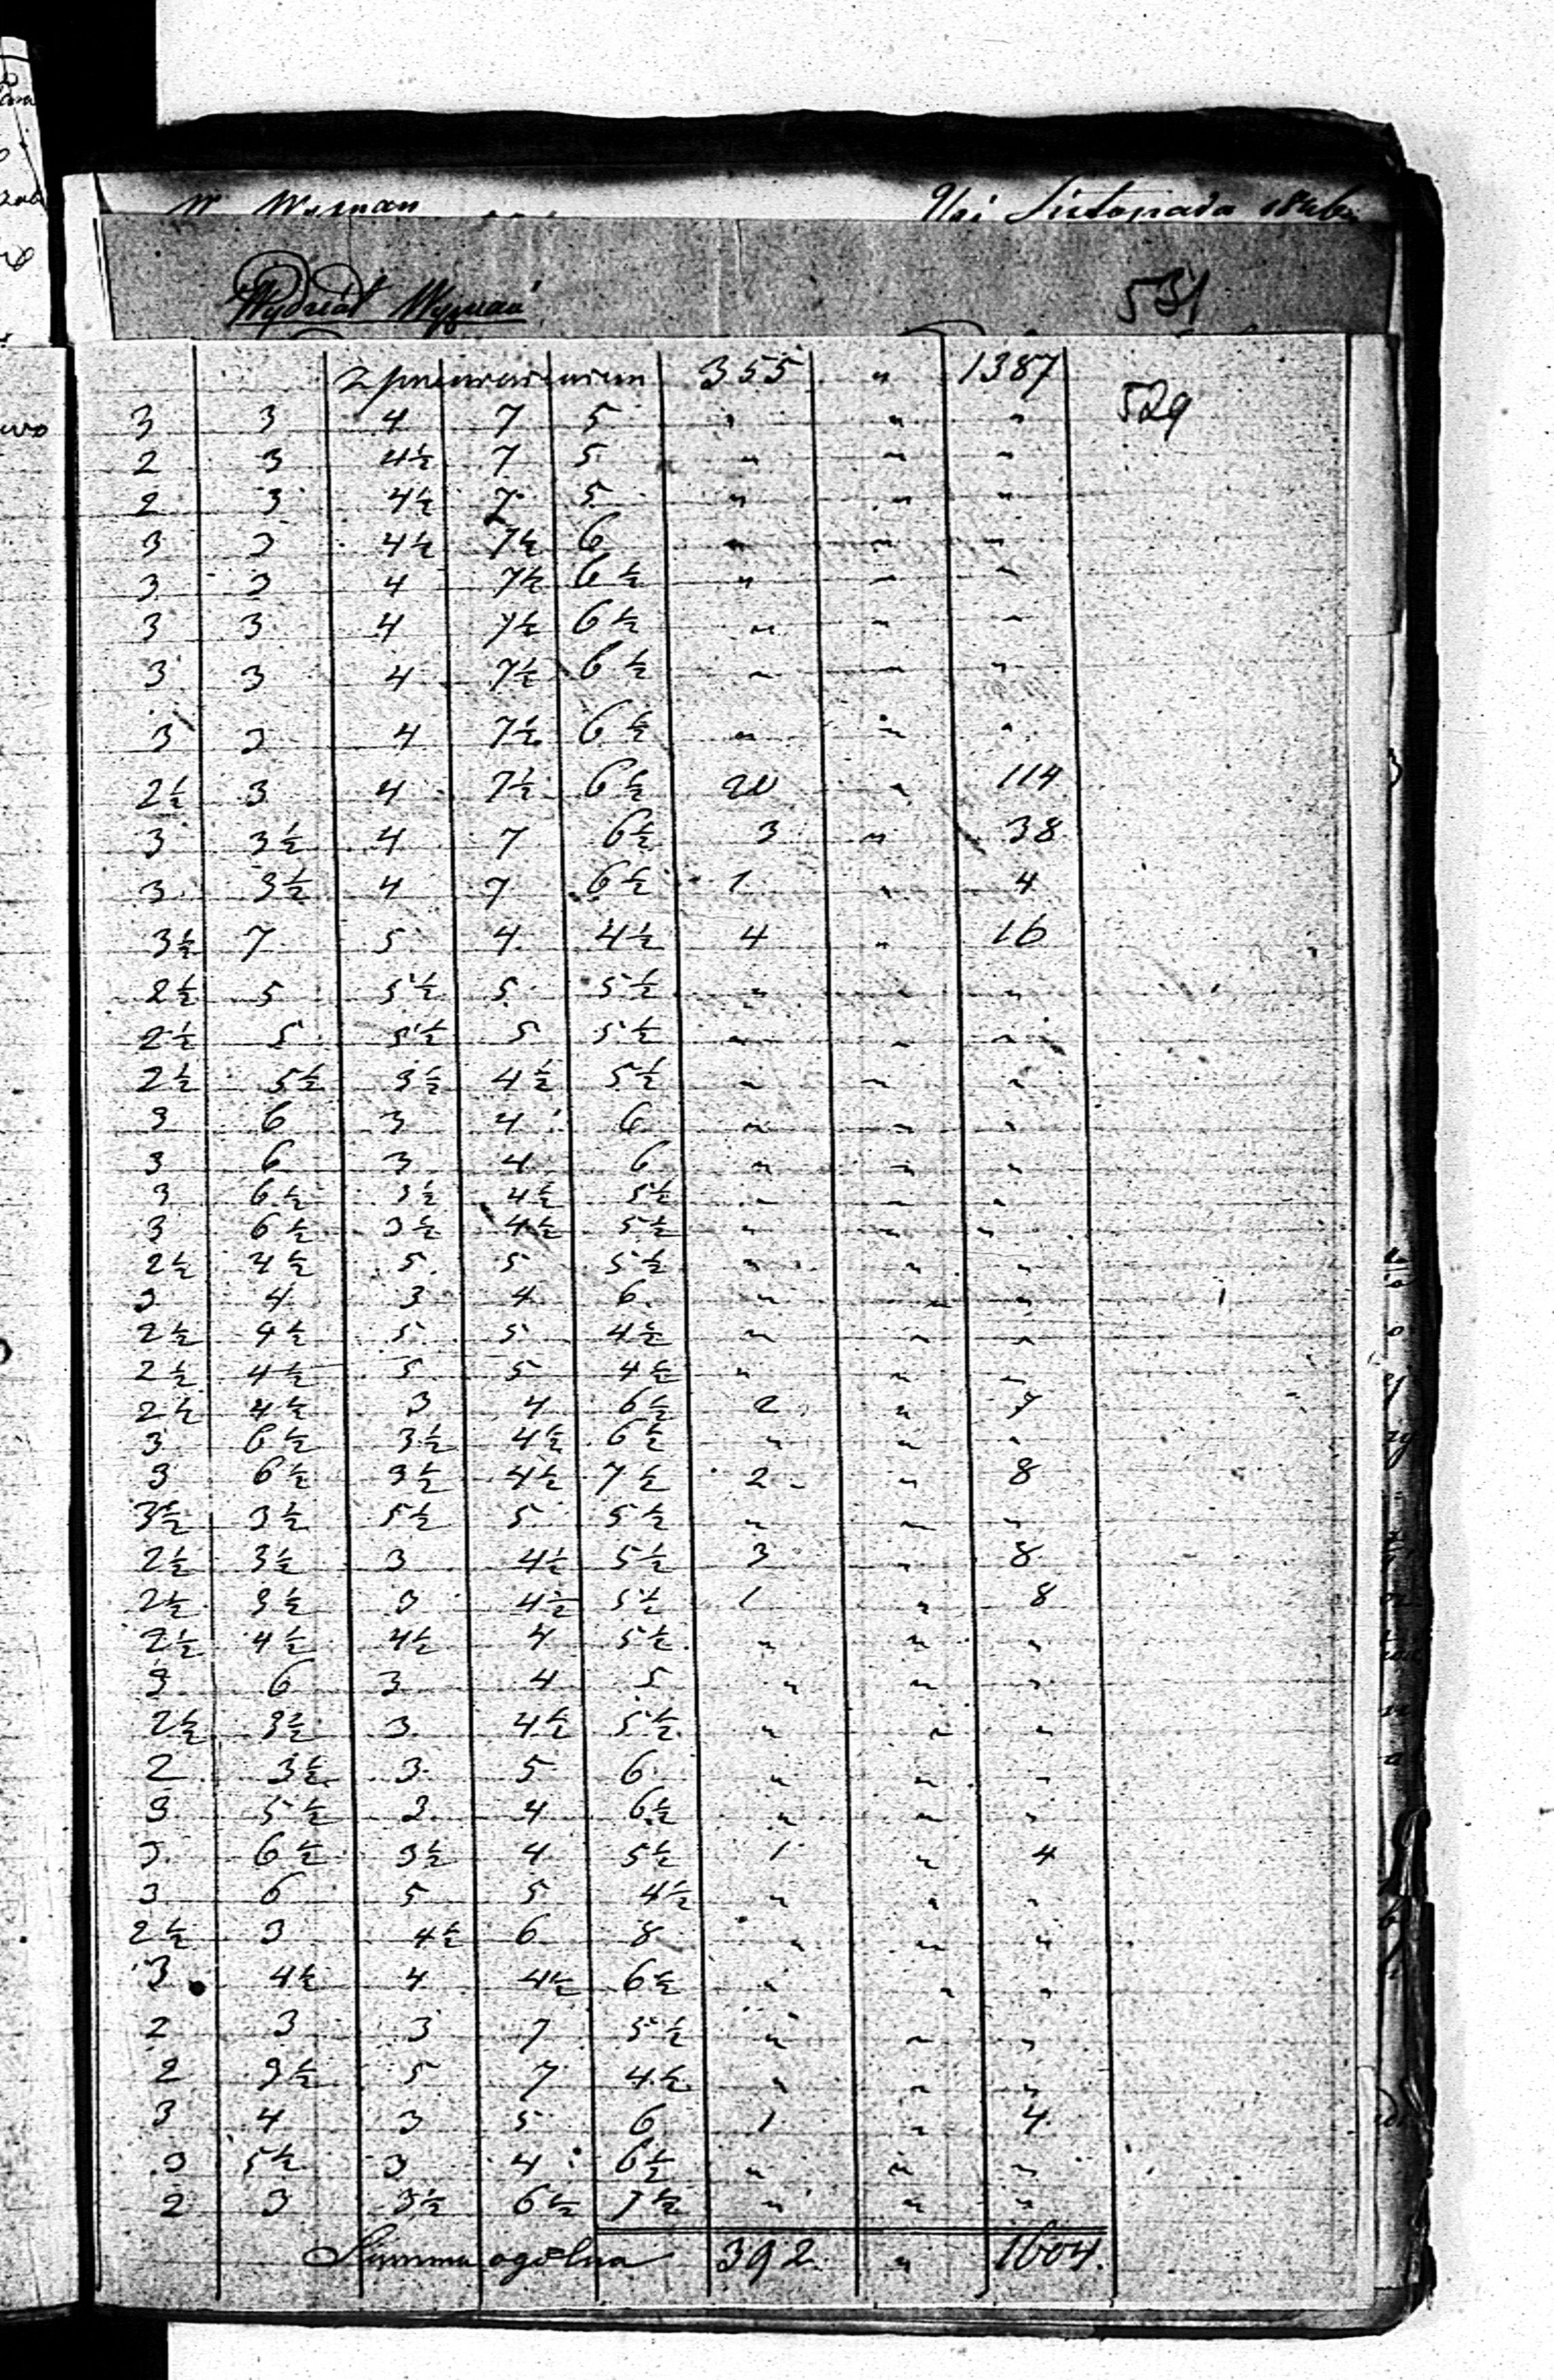 Listopada 1846
Wydział Wyznań 531
z przeniesienia 355 " 1387
529
3 3 4 7 5 " " "
2 3 4½ 7 5 " " "
2 3 4½ 7 5 " " "
3 3 4½ 7½ 6 " " "
3 3 4 7½ 6½ " " "
3 3 4 7½ 6½ " " "
3 3 4 7½ 6½ " " "
3 3 4 7½ 6½ " " "
2½ 3 4 7½ 6½ 20 " 114
3 3½ 4 7 6½ 3 " 38
3 3½ 4 7 6½ 1 " 4
3½ 7 5 4 4½ 4 " 16
2½ 5 5½ 5 5½ " " "
2½ 5 5½ 5 5½ " " "
2½ 5½ 3½ 4½ 5½ " " "
3 6 3 4 6 " " "
3 6 3 4 6 " " "
3 6½ 3½ 4½ 5½ " " "
3 6½ 3½ 4½ 5½ " " "
2½ 4½ 5 5 5½ " " "
3 4 3 4 6 " " "
2½ 4½ 5 5 4½ " " "
2½ 4½ 5 5 4½ " " "
2½ 4½ 3 4 6½ 2 " 7
3 6½ 3½ 4½ 6½ " " "
3 6½ 3½ 4½ 7½ 2 " 8
3½ 3½ 5½ 5 5½ " " "
2½ 3½ 3 4½ 5½ 3 " 8
2½ 3½ 3 4½ 5½ 1 " 8
2½ 4½ 4½ 4 5½ " " "
3 6 3 4 5 " " "
2½ 3½ 3 4½ 5½ " " "
2 3½ 3 5 6 " " "
3 5½ 3 4 6½ " " "
3 6½ 3½ 4 5½ 1 " 4
3 6 5 5 4½ " " "
2½ 3 4½ 6 8 " " "
3 4½ 4 4½ 6½ " " "
2 3 3 7 5½ " " "
2 3½ 5 7 4½ " " "
3 4 3 5 6 1 " 4
3 5½ 3 4 6½ " " "
2 3 3½ 6½ 7½ " " "
Summa ogólna 392 " 1604.